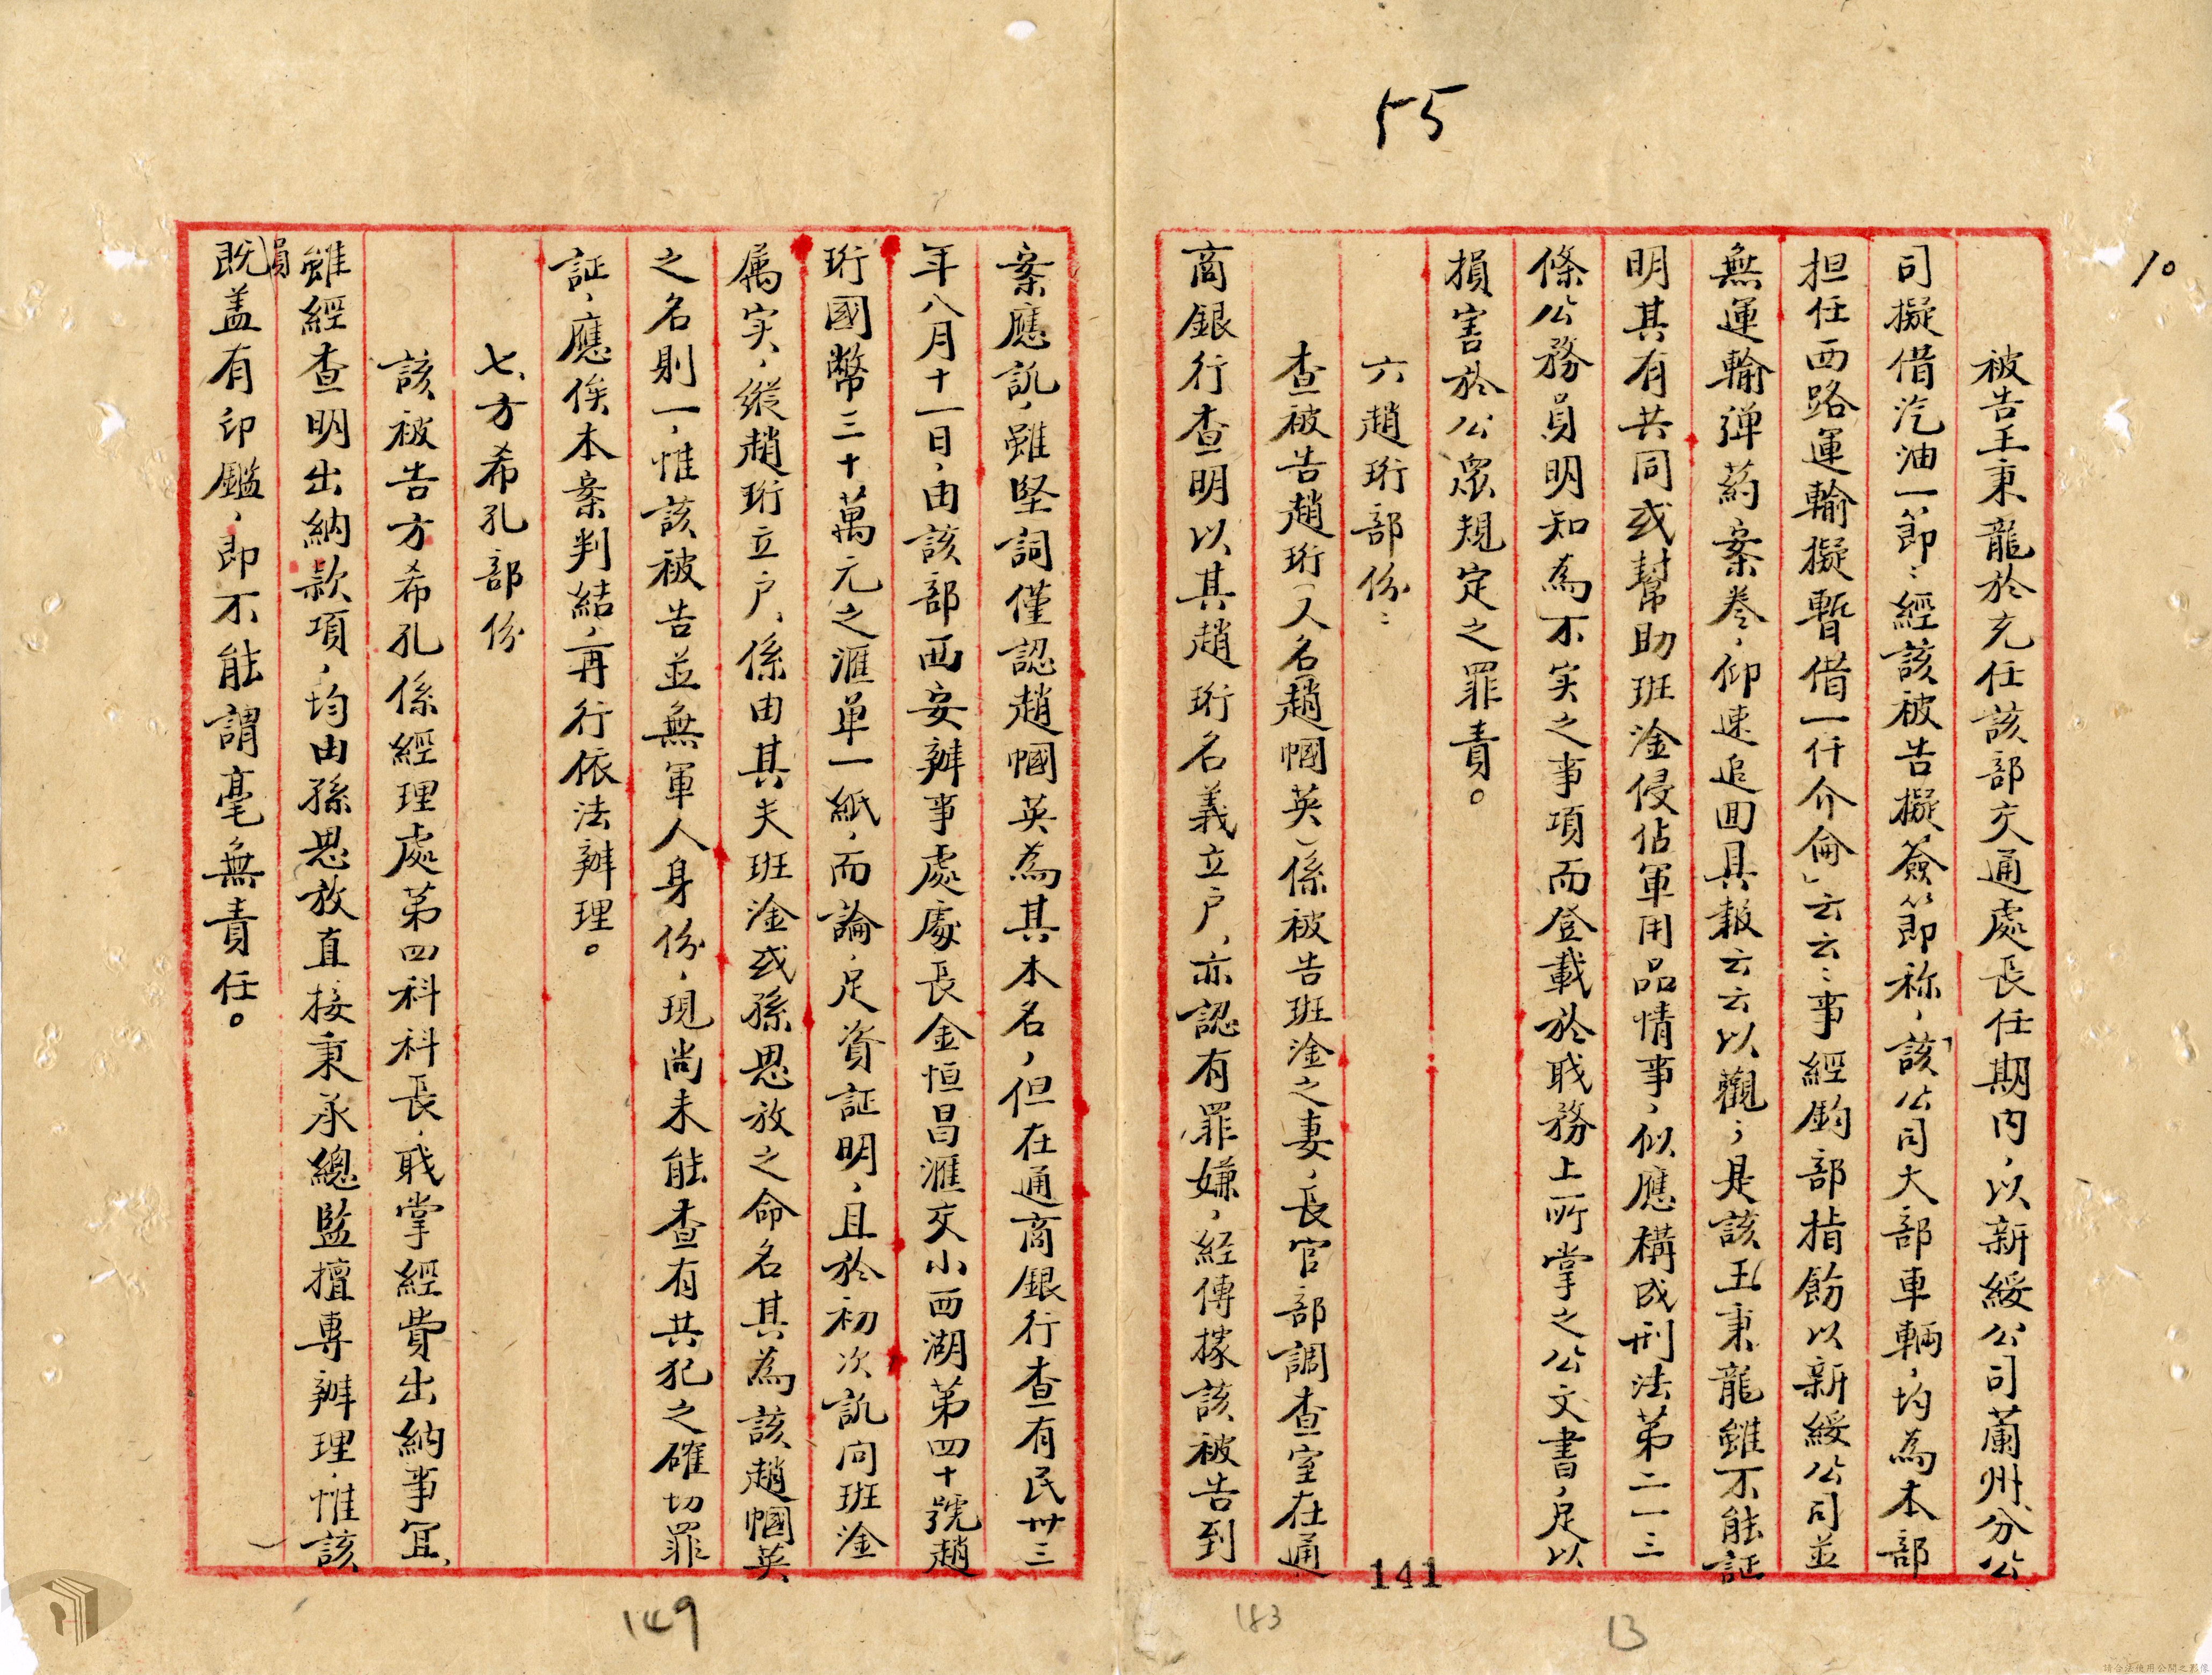 55
10
被告王秉龍於充任該部交通處長任期內，以新綏公司蘭州分公
司擬借汽油一節：經該被告擬簽節称，「該公司大部車輛，均為本部
担任西路運輸擬暫借一仟介侖」云云：事經鈞部指飭以新綏公司並
無運輸弹葯案卷，仰速追囬具報云云以觀；是該王秉龍雖不能証
明其有共同或幫助班淦侵佔軍用品情事，似應構成刑法第二一三
條公務員明知為不实之事項而登載於职務上所掌之公文書，足以
損害於公眾規定之罪責。
六趙珩部份：
查被告趙珩（人名趙幗英）係被告班淦之妻，長官部調查室在通
商銀行查明以其趙珩名義立户，亦認有罪嫌，经傳據該被告到
案應訊，雖坚詞僅認趙幗英為其本名，但在通商銀行查有民卅三
年八月十一日，由該部西安辦事處處長金恒昌滙交小西湖第四十號趙
珩國幣三十萬元之滙单一紙，而論，足資証明，且於初次訊问班淦
属实，縱趙珩立户，係由其夫班淦或孫思放之命名其為該趙幗英
之名則一，惟該被告並無軍人身份，現尚未能查有共犯之確切罪
証，應俟本案判結，再行依法辦理。
七、方希孔部份
該被告方希孔係經理處第四科科長，职掌經費出納事宜，
雖經查明出納款項，均由孫思放直接秉承總監擅專辦理，惟該
員既盖有印鑑，即不能謂毫無責任。
141
149
183
13
請合法使用公開之影像